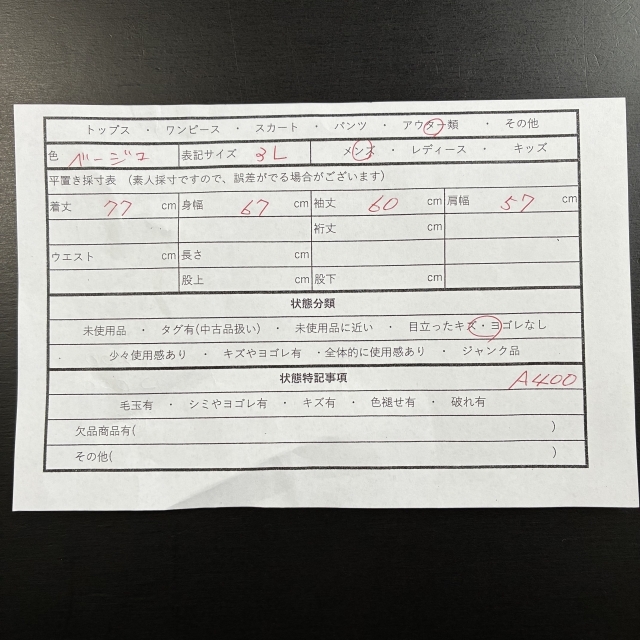 トップス ・ ワンピース ・ スカート ・ パンツ ・ アウター類 ・ その他
色 ベージュ 表記サイズ 3L メンズ ・ レディース ・ キッズ
平置き採寸表 (素人採寸ですので、誤差がでる場合がございます)
着丈 77 cm 身幅 67 cm 袖丈 60 cm 肩幅 57 cm
裄丈 cm
ウエスト cm 長さ cm
股上 cm 股下 cm
状態分類
未使用品 ・ タグ有(中古品扱い) ・ 未使用品に近い ・ 目立ったキズ・ヨゴレなし
少々使用感あり ・ キズやヨゴレ有 ・全体的に使用感あり ・ ジャンク品
状態特記事項 A400
毛玉有 ・ シミやヨゴレ有 ・ キズ有 ・ 色褪せ有 ・ 破れ有
欠品商品有( )
その他( )